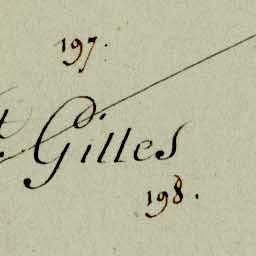 197.
t. Gilles
198.